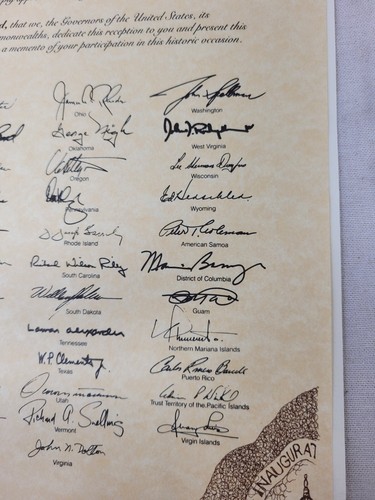 d, that we, the Governors of the United States, its
monwealths, dedicate this reception to you and present this
a memento of your participation in this historic occasion.
Ohio
Washington
George Nigh
Oklahoma
West Virginia
Oregon
Lee Sherman Dreyfus
Wisconsin
Pennsylvania
Ed Herschler
Wyoming
J. Joseph Garrahy
Rhode Island
Peter T. Coleman
American Samoa
Richard Wilson Riley
South Carolina
Marion Barry
District of Columbia
South Dakota
Guam
Lamar Alexander
Tennessee
Northern Mariana Islands
W.P. Clements Jr.
Texas
Carlos Romero Barceló
Puerto Rico
Utah
Trust Territory of the Pacific Islands
Richard A. Snelling
Vermont
Juan Luis
Virgin Islands
John N. Dalton
Virginia
INAUGURAT